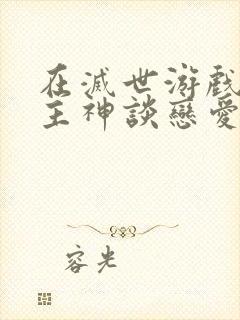 在滅世游戲
主神談戀愛
容光